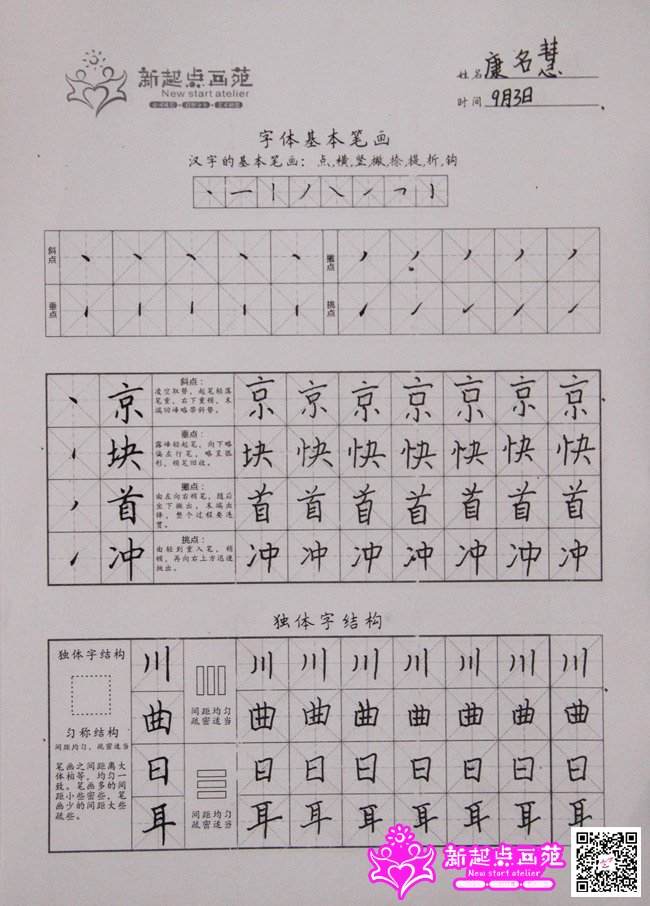 新起点画苑
New start atelier
姓名 康名慧
时间 9月3日
字体基本笔画
汉字的基本笔画：点,横,竖,撇,捺,提,折,钩
斜点
撇点
垂点
挑点
京
斜点：
凌空取势，起笔轻落
笔重，右下重顿，末
端回峰略带斜势。
京 京 京 京 京 京 京
块
垂点：
露峰轻起笔，向下略
偏左行笔，略呈弧
形，顿笔回收。
块 快 快 快 快 快 快
首
撇点：
由左向右顿笔，随后
坐下撇出，末端出
锋，整个过程要连
贯。
首 首 首 首 首 首 首
冲
挑点：
由轻到重入笔，稍
顿，再向右上方迅速
挑出。
冲 冲 冲 冲 冲 冲 冲
独体字结构
独体字结构
匀称结构
间距均匀，疏密适当
笔画之间距离大
体相等，均匀一
致。笔画多的间
距小些密些，笔
画少的间距大些
疏些。
川
间距均匀
疏密适当
川 川 川 川 川 川 川
曲
曲 曲 曲 曲 曲 曲 曲
日
间距均匀
疏密适当
日 日 日 日 日 日 日
耳
耳 耳 耳 耳 耳 耳 耳
新起点画苑
New start atelier